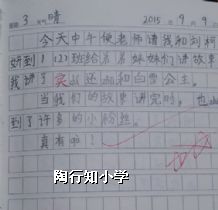 3 晴 2015年9月9
今天中午倪老师请我和刘柯
妍到1(2)班给弟弟妹妹们讲故事
我讲了 和白雪公主。
当我们的故事讲完时,也
到了许多的小粉丝。
真有啦!
陶行知小学